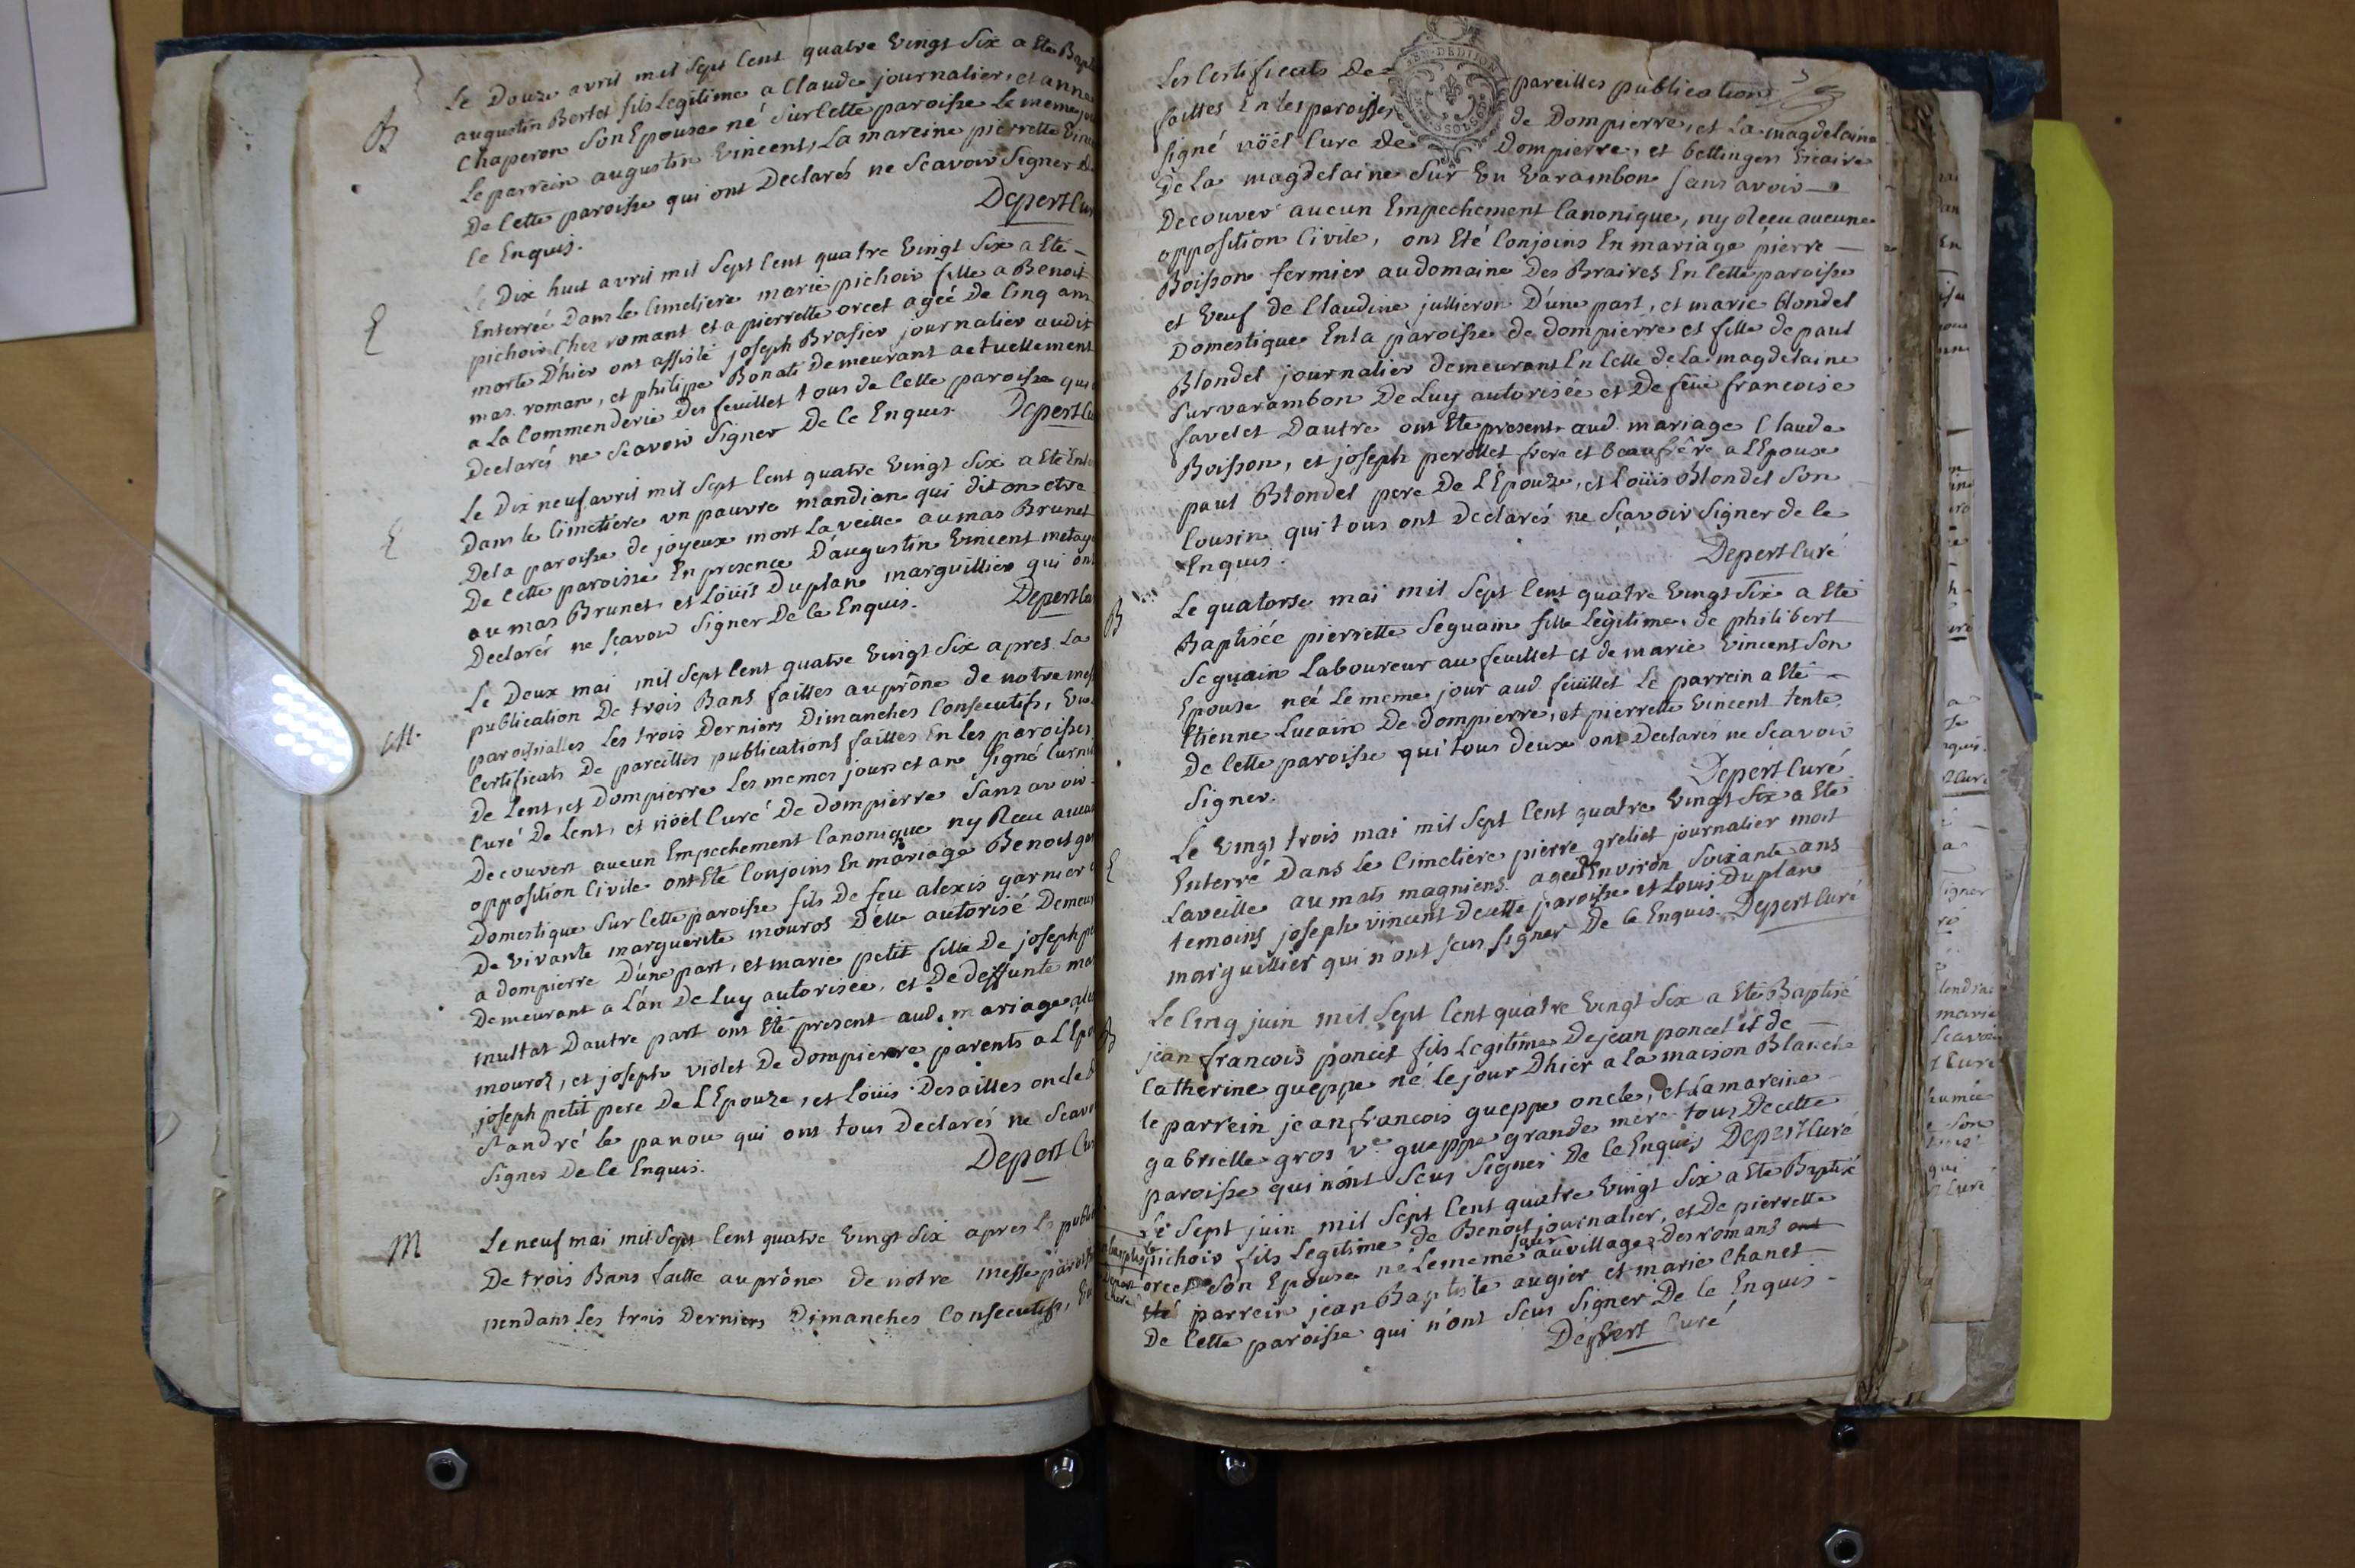 B
Le Douze avril mil Sept Cent quatre Vingt Six a Ete Bapt
augustin Bertet fils Legitime a Claude journalier, et anne
Chaperon Son Epouse né Sur Cette paroisse Le meme jou
Le parrein augustin Vincent, La mareine pierrette Vinc
De Cette paroisse qui ont Declarés ne Scavoir Signer De
Ce Enquis. Depert Cur
E
Le Dix huit avril mil Sept Cent quatre Vingt Six a Eté
Enterrée Dans Le Cimetiere marie pichoir fille a Benoit
pichoir Chez romant et a pierrette orcet agée De Cinq ans
morte Dhier ont assisté joseph Brasier journalier audit
mas roman, et philipe Bonat Demeurant actuellement
a La Commenderie Des feuillet tous de Cette paroisse qui
Declarés ne Scavoir Signer De Ce Enquis. Depert Cu
E
Le Dix neuf avril mil Sept Cent quatre Vingt Six a Eté Ente
Dans le Cimetiere un pauvre mandian qui dit on etre
De la paroisse de joyeux mort La veille au mas Brunet
De Cette paroisse En presence D'augustin Vincent metaye
au mas Brunet et Loüis Duplan marguillier qui ont
Declarés ne Scavoir Signer De Ce Enquis. Depert Cur
M.
Le Deux mai mil Sept Cent quatre Vingt Six apres La
publication De trois Bans faittes au prône de notre mess
paroissialles Les trois Derniers Dimanches Consecutifs, Vu
Certificats De pareilles publications faittes En les paroisses
De Lent, et Dompierre Les memes jours et an Signé
Curé De Lent, et nöel Curé De Dompierre Sans avoir
Decouvert aucun Empechement Canonique ny Recu aucun
opposition Civile ont Eté Conjoins En mariage Benoit gar
Domestique Sur Cette paroisse fils De feu alexis garnier
De Vivante marguerite mouros D'elle autorisé Demeur
a Dompierre D'une part, et marie petit fille De joseph pe
Demeurant a Lan De Luy autorisée, et De deffunte mar
multat D'autre part ont Eté present aud. mariage
mouros, et joseph violet De Dompierre parents a L'Epo
joseph petit pere De L'Epouze, et Loüis Desailles oncle
St andré le panou qui ont tous Declarés ne Scavo
Signer De Ce Enquis. Depert Cur
M
Le neuf mai mil Sept Cent quatre Vingt Six apres La publi
De trois Bans faitte au prône de notre messe paroiss
pendant Les trois Derniers Dimanches Consecutifs, Vu
Les Certificats De pareilles publications
faittes En les paroisses de Dompierre, et La magdelaine
Signé nöel Cure De Dompierre, et bellingen Vicaire
De La magdelaine Sur En Varambon Sans avoir
Decouver aucun Empechement Canonique, ny Receu aucune
opposition Civile, ont Eté Conjoins En mariage pierre
Boisson fermier au domaine Des Braires En Cette paroisse
et Veuf de Claudine jullieron D'une part, et marie blondel
Domestique En la paroisse de Dompierre et fille de paul
Blondel journalier demeurant En Celle de La magdelaine
Sur varambon De Luy autorisée et De feüe francoise
favelet D'autre ont Eté present aud. mariage Claude
Boisson, et joseph perollet frere et beaufrêre a L'Epoux
paul Blondel pere De L'Epouze, et Loüis Blondel Son
Cousin qui tous ont Declarés ne Scavoir Signer de Ce
Enquis. Depert Curé
B
Le quatorse mai mil Sept Cent quatre Vingt Six a Eté
Baptisée pierrette Seguain fille Legitime de philibert
Seguain Laboureur au feuillet et de marie Vincent Son
Epouse née Le meme jour aud. feüillet Le parrein a Eté
Etienne Lucain De Dompierre, et pierrette Vincent tente
De Cette paroisse qui tous deux ont Declarés ne Scavoir
Signer. Depert Curé.
E
Le Vingt trois mai mil Sept Cent quatre Vingt Six a Eté
Enterré Dans Le Cimetiere pierre greliet journalier mort
La veille au mats magniens agee D'environ Soixante ans
temoins joseph vincent De cette paroisse et Louis Duplan
marguillier qui n'ont Sceu Signer De Ce Enquis Depert Curé
B
Le Cinq juin mil Sept Cent quatre Vingt Six a Eté Baptisé
jean francois poncet fils Legitime De jean poncet et de
Catherine gueppe né le jour Dhier a La maison Blanche
le parrein jean francois gueppe oncle, et La mareine
gabrielle gros ve gueppe grande mere tous De cette
paroisse qui n'ont Sceu Signer De Ce Enquis Depert Curé
Le Sept juin mil Sept Cent quatre Vingt Six a Ete Baptisé
pichoir fils Legitime de Benoit journalier, et De pierrette
orcet Son Epouse né Le meme jour au village Des romans ont
Eté parrein jean Baptiste augier et marie Chanel
De Cette paroisse qui n'ont Sceu Signer De Ce Enquis
Depert Curé